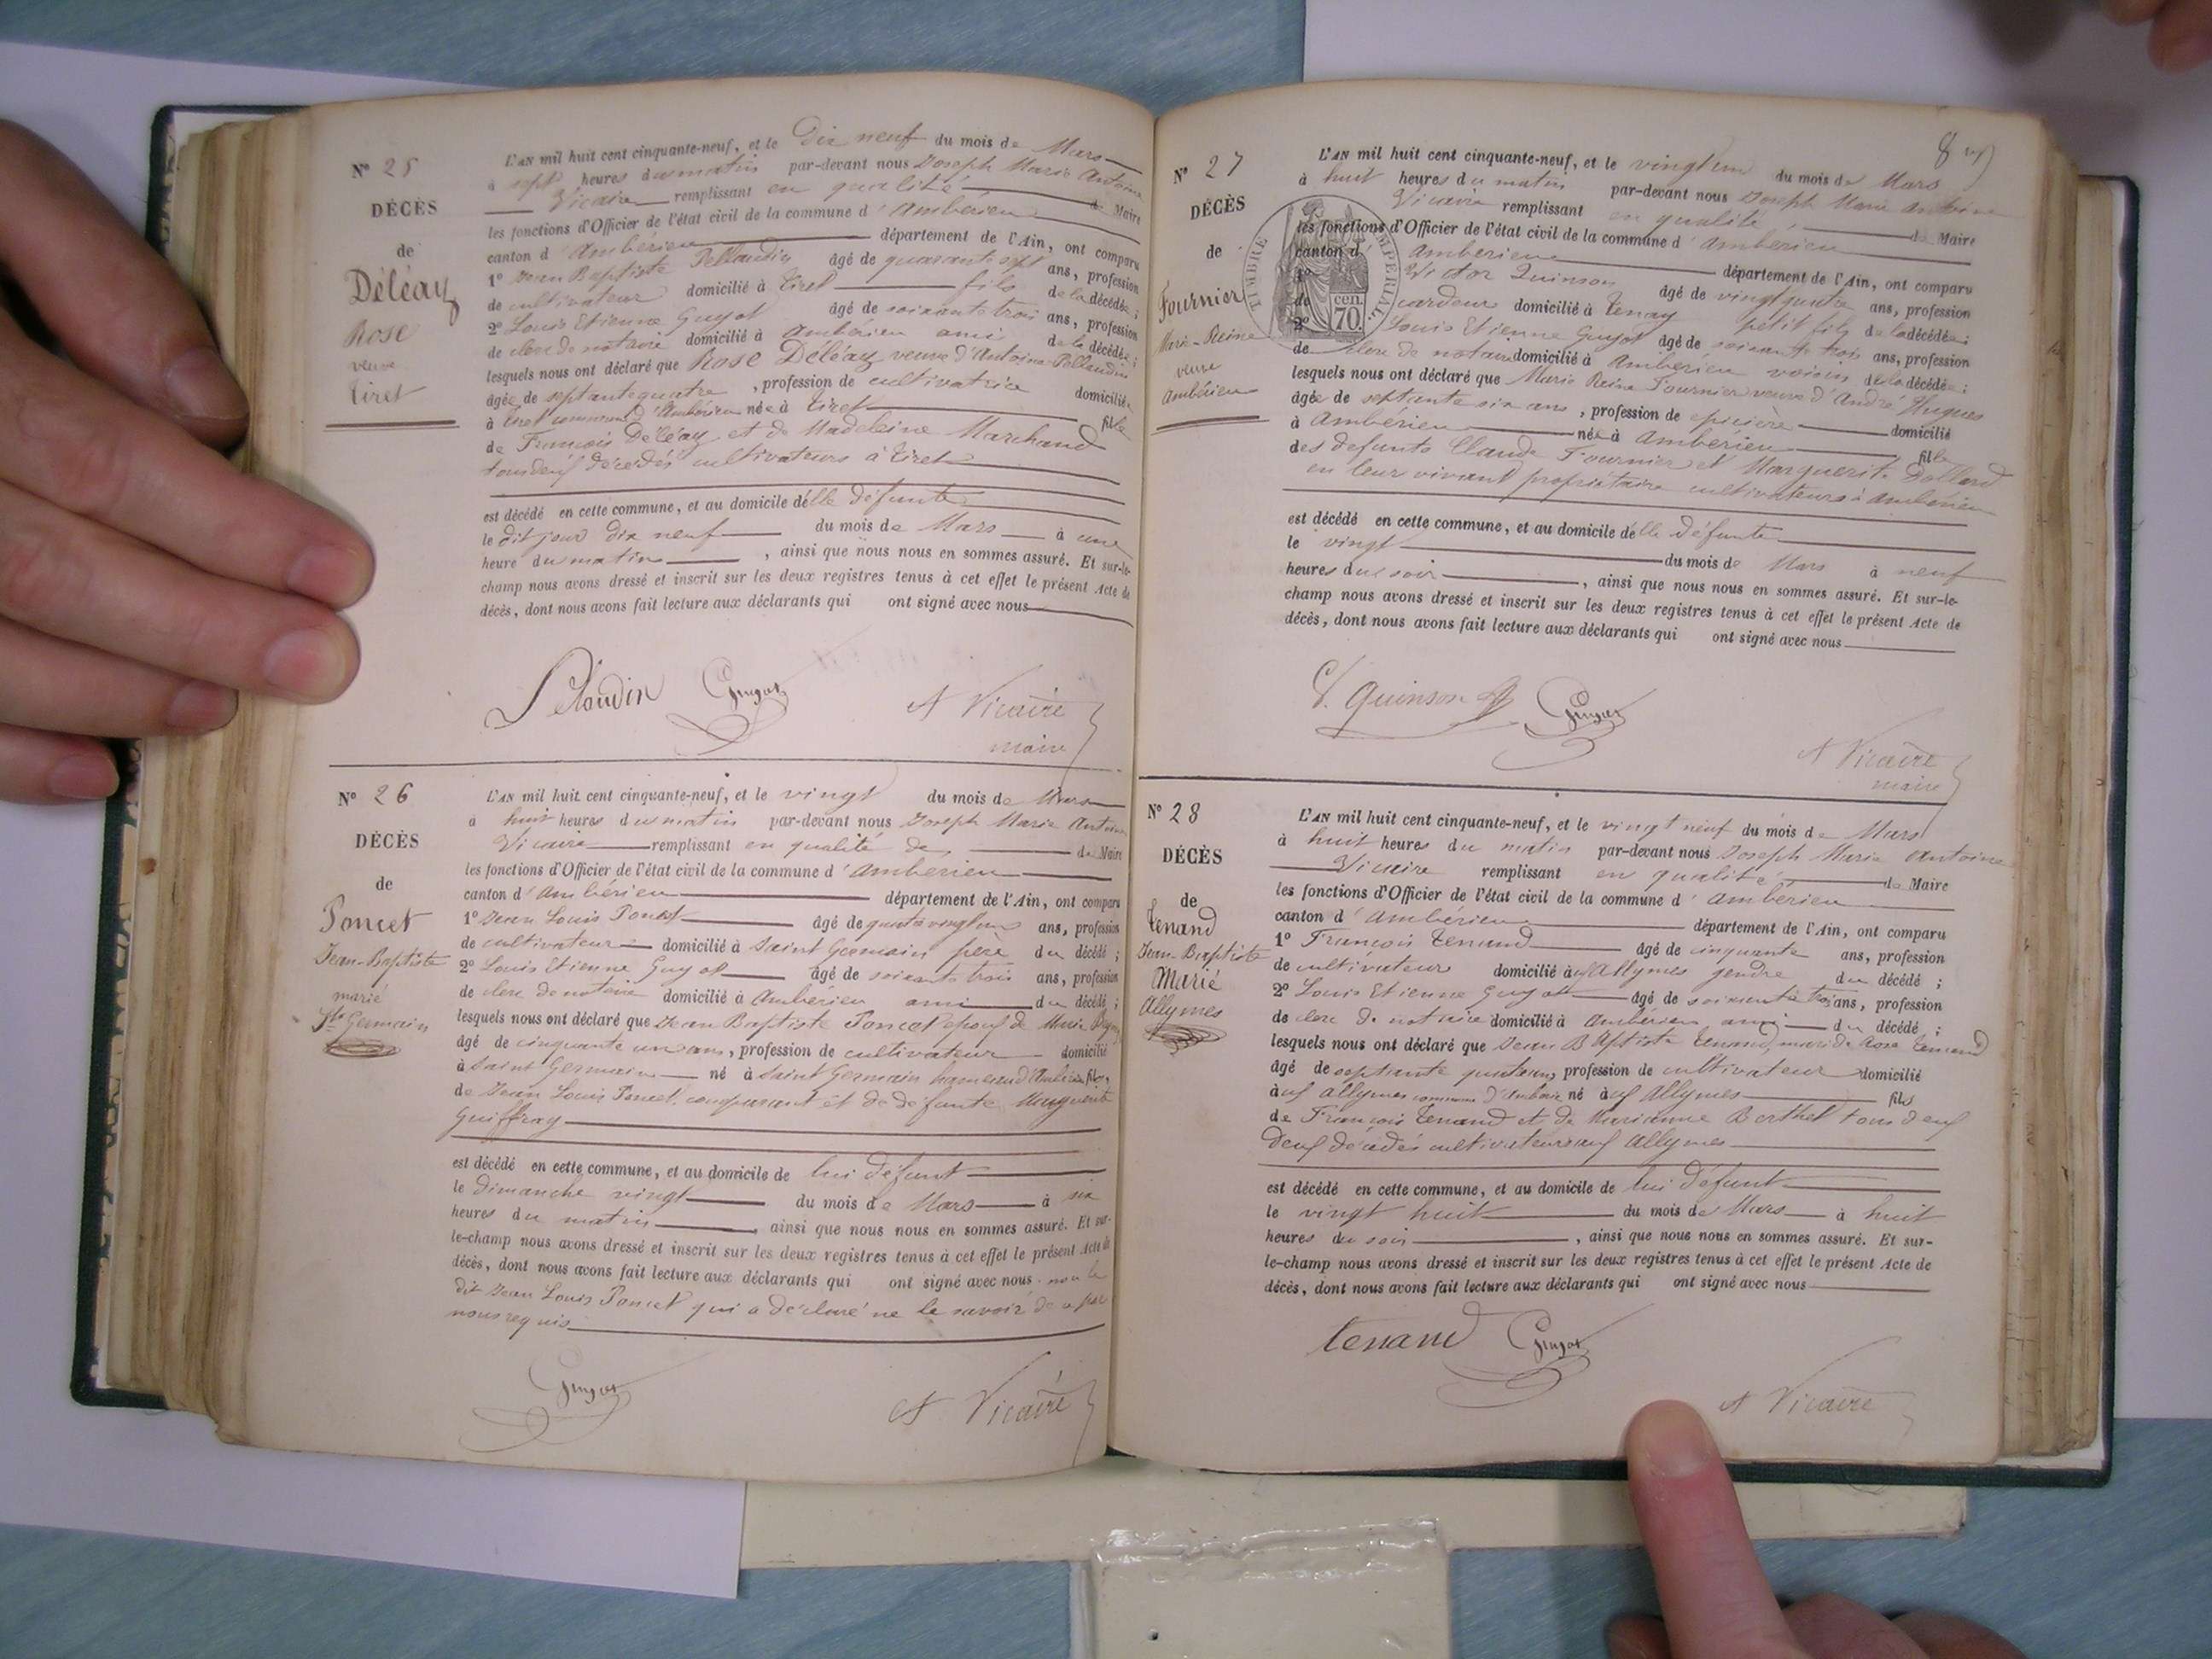 N° 25
DÉCÈS
de
Déléaz
Rose
veuve
Tiret
L'AN mil huit cent cinquante-neuf, et le Dix neuf du mois de Mars
à sept heures du matin par-devant nous Joseph Marie Antoine
Vicaire remplissant en qualité de Maire
les fonctions d'Officier de l'état civil de la commune d'Ambérieu
canton d'Ambérieu département de l'Ain, ont comparu
1° Jean Baptiste Pellaudin âgé de quarante sept ans, profession
de cultivateur domicilié à Tiret fils de la décédée ;
2° Louis Etienne Guyot âgé de soixante trois ans, profession
de clerc de notaire domicilié à Ambérieu ami de la décédée ;
lesquels nous ont déclaré que Rose Déléaz veuve d'Antoine Pellaudin
âgée de septante quatre , profession de cultivatrice domiciliée
à Tiret commune d'Ambérieu née à Tiret fille
de François Déléaz et de Madeleine Marchand
tous deux décédés cultivateurs à Tiret
est décédé en cette commune, et au domicile d'elle défunte
le dit jour dix neuf du mois de Mars à une
heure du matin , ainsi que nous nous en sommes assuré. Et sur-le-
champ nous avons dressé et inscrit sur les deux registres tenus à cet effet le présent Acte de
décès, dont nous avons fait lecture aux déclarants qui ont signé avec nous
Guyot A Vicaire
maire
N° 26
DÉCÈS
de
Poncet
Jean-Baptiste
marié
St Germain
L'AN mil huit cent cinquante-neuf, et le vingt du mois de Mars
à huit heures du matin par-devant nous Joseph Marie Antoine
Vicaire remplissant en qualité de de Maire
les fonctions d'Officier de l'état civil de la commune d'Ambérieu
canton d'Ambérieu département de l'Ain, ont comparu
1° Jean Louis Poncet âgé de ans, profession
de cultivateur domicilié à Saint Germain père du décédé ;
2° Louis Etienne Guyot âgé de soixante trois ans, profession
de clerc de notaire domicilié à Ambérieu ami du décédé ;
lesquels nous ont déclaré que Jean Baptiste Poncet époux de Marie
âgé de cinquante un ans, profession de cultivateur domicilié
à Saint Germain né à Saint Germain hameau d'Ambérieu fils
de Jean Louis Poncet comparant et de défunte Marguerite
Guiffray
est décédé en cette commune, et au domicile de lui défunt
le dimanche vingt du mois de Mars à six
heures du matin , ainsi que nous nous en sommes assuré. Et sur-
le-champ nous avons dressé et inscrit sur les deux registres tenus à cet effet le présent Acte de
décès, dont nous avons fait lecture aux déclarants qui ont signé avec nous non le
dit Jean Louis Poncet qui a déclaré ne le savoir de ce par
nous requis
Guyot A Vicaire
8
N° 27
DÉCÈS
de
Fournier
Marie-Reine
veuve
Ambérieu
TIMBRE IMPÉRIAL
70 cen.
L'AN mil huit cent cinquante-neuf, et le vingt un du mois de Mars
à huit heures du matin par-devant nous Joseph Marie Antoine
Vicaire remplissant en qualité de Maire
les fonctions d'Officier de l'état civil de la commune d'Ambérieu
canton d'Ambérieu département de l'Ain, ont comparu
1° Victor Quinson âgé de vingt quatre ans, profession
de cardeur domicilié à Tenay petit fils de la décédée ;
2° Louis Etienne Guyot âgé de soixante trois ans, profession
de clerc de notaire domicilié à Ambérieu voisin de la décédée ;
lesquels nous ont déclaré que Marie Reine Fournier veuve d'André Hugues
âgée de septante six ans , profession de epicière domicilié
à Ambérieu née à Ambérieu fille
des defunts Claude Fournier et Marguerite Dollard
en leur vivant propriétaire cultivateurs à Ambérieu
est décédé en cette commune, et au domicile d'elle défunte
le vingt du mois de Mars à neuf
heures du soir , ainsi que nous nous en sommes assuré. Et sur-le-
champ nous avons dressé et inscrit sur les deux registres tenus à cet effet le présent Acte de
décès, dont nous avons fait lecture aux déclarants qui ont signé avec nous
V. Quinson Guyot
A Vicaire
maire
N° 28
DÉCÈS
de
Tenand
Jean-Baptiste
Marié
Allymes
L'AN mil huit cent cinquante-neuf, et le vingt neuf du mois de Mars
à huit heures du matin par-devant nous Joseph Marie Antoine
Vicaire remplissant en qualité de Maire
les fonctions d'Officier de l'état civil de la commune d'Ambérieu
canton d'Ambérieu département de l'Ain, ont comparu
1° François Tenand âgé de cinquante ans, profession
de cultivateur domicilié aux Allymes gendre du décédé ;
2° Louis Etienne Guyot âgé de soixante trois ans, profession
de clerc de notaire domicilié à Ambérieu ami du décédé ;
lesquels nous ont déclaré que Jean Baptiste Tenand, mari de Rose Tenand
âgé de septante ans, profession de cultivateur domicilié
aux Allymes commune d'Ambérieu né aux Allymes fils
de François Tenand et de Marianne Berthet tous deux
deux décédés cultivateurs aux Allymes
est décédé en cette commune, et au domicile de lui défunt
le vingt huit du mois de Mars à huit
heures du soir , ainsi que nous nous en sommes assuré. Et sur-
le-champ nous avons dressé et inscrit sur les deux registres tenus à cet effet le présent Acte de
décès, dont nous avons fait lecture aux déclarants qui ont signé avec nous
tenand Guyot
A Vicaire